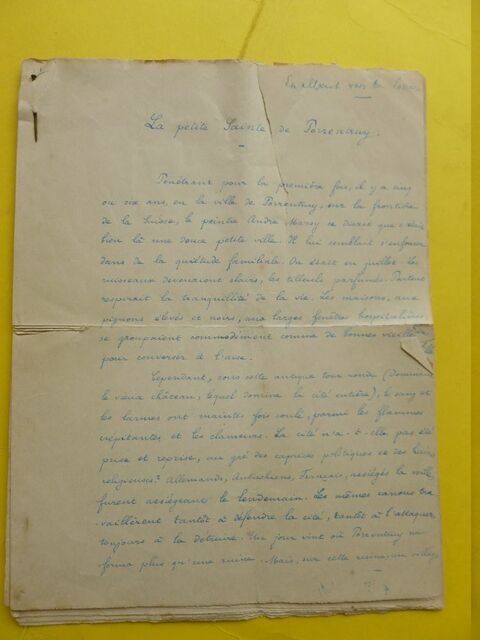 En allant vers
La petite Sainte de Porrentruy.
Pénétrant pour la première fois, il y a cinq
ou six ans, en la ville de Porrentruy, sur la frontière
de la Suisse, le peintre André Marsy se disait que c'était
bien là une douce petite ville. Il lui semblait s'enfoncer
dans de la quiétude familiale. On était en juillet. Les
ruisseaux devenaient clairs, les tilleuls parfumés. Partout
respirait la tranquillité de la vie. Les maisons, aux
pignons élevés et noirs, aux larges fenêtres hospitalières,
se groupaient commodément comme de bonnes vieilles
pour converser à l'aise.
Cependant, sous cette antique tour ronde (Dominant
le vieux château, lequel domine la cité entière), le sang et
les larmes ont maintes fois coulé, parmi les flammes
crépitantes et les clameurs. La cité n'a-t-elle pas été
prise et reprise, au gré des caprices politiques et des haines
religieuses? Allemands, Autrichiens, Français, assiégés la veille,
furent assiégeants le lendemain. Les mêmes canons tra
vaillèrent tantôt à défendre la cité, tantôt à l'attaquer,
toujours à la détruire. Un jour vint où Porrentruy ne
forma plus qu'une ruine. Mais, sur cette ruine, un village